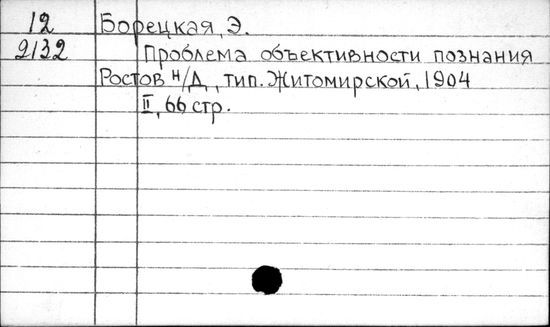 12 Борецкая, Э.
2132 Проблема объективности познания
Ростов н/Д, тип. Житомирской, 1904
II, 66 стр.